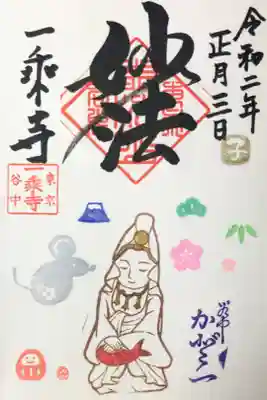 令和二年
正月三日
子
妙法
一乗寺
東京
一乗寺
谷中